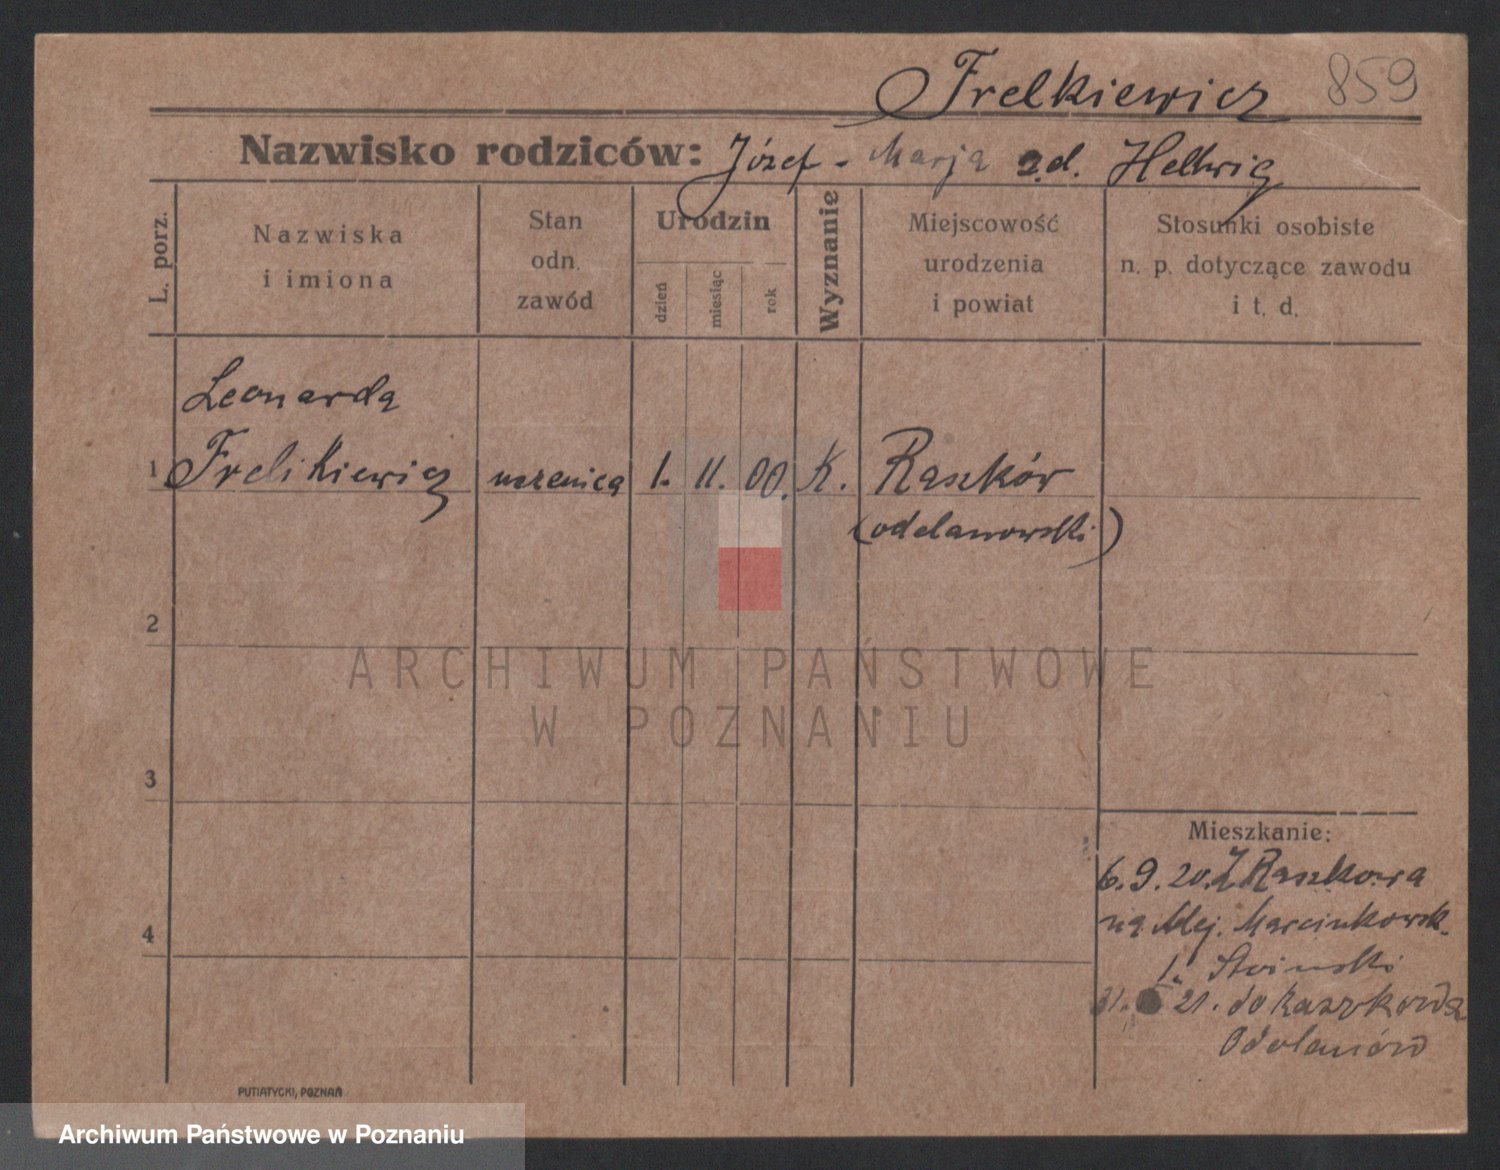 Frelkiewicz 859
Nazwisko rodziców: Józef - Marja z.d. Hellwig
L. porz.
Nazwiska
i imiona
Stan
odn.
zawód
Urodzin
dzień
miesiąc
rok
Wyznanie
Miejscowość
urodzenia
i powiat
Stosunki osobiste
n. p. dotyczące zawodu
i t. d.
Leonarda
1 Frelikiewicz uczenica 1. 11. 00. K. Raszków
(odolanowski)
2
ARCHIWUM PAŃSTWOWE
W POZNANIU
3
Mieszkanie:
6.9.20. Z Raszkowa
4
na Alej. Marcinkowsk.
1.
31. 21. do Raszkowa
Odolanów
PUTIATYCKI, POZNAŃ
Archiwum Państwowe w Poznaniu